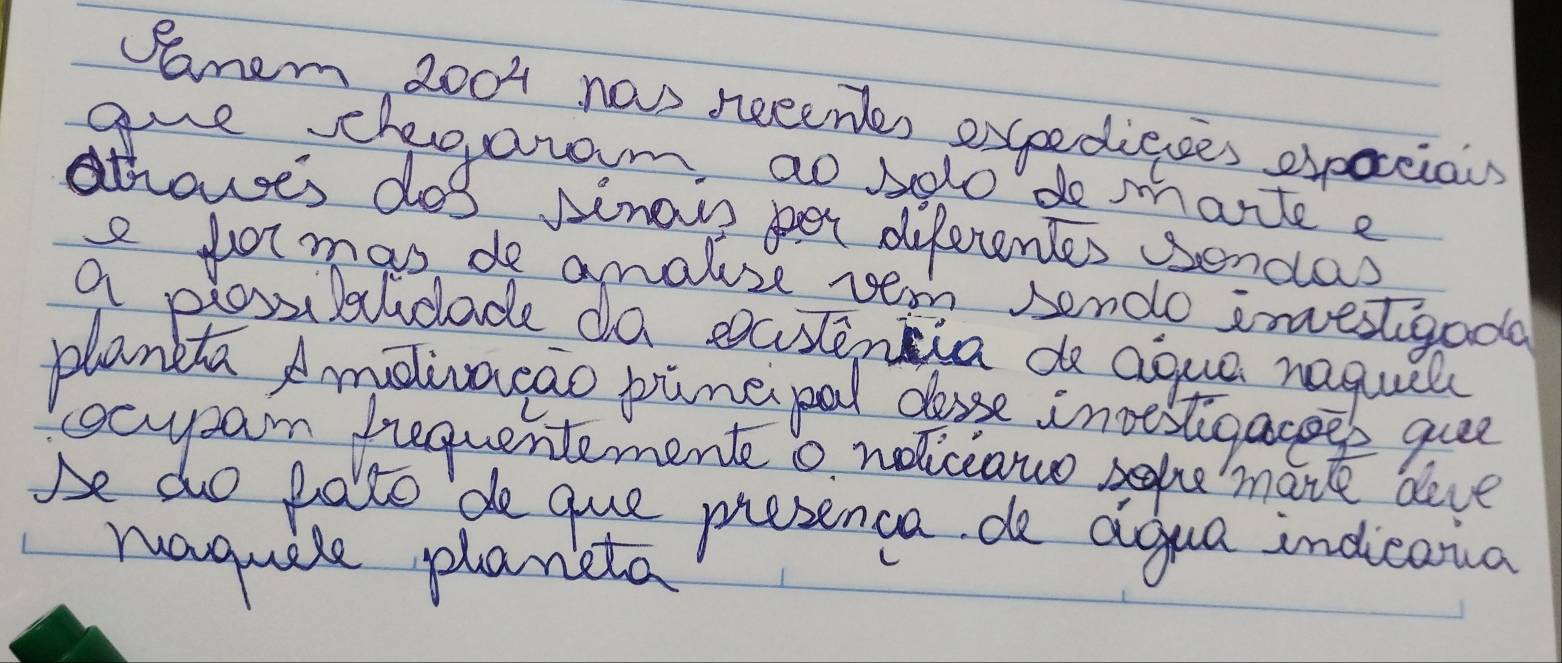 Fanem 2004 nas recentes expedições espaciais
que chegaram ao solo de marte e
através dos sinais por diferentes sondas
e formas de analise vem sendo investigada
a possibilidade da existência de água naquele
planeta A motivação principal desse investigações que
ocupam frequentemente o noticiario sobre marte deve
se ao fato de que presença de água indicaria
naquele planeta